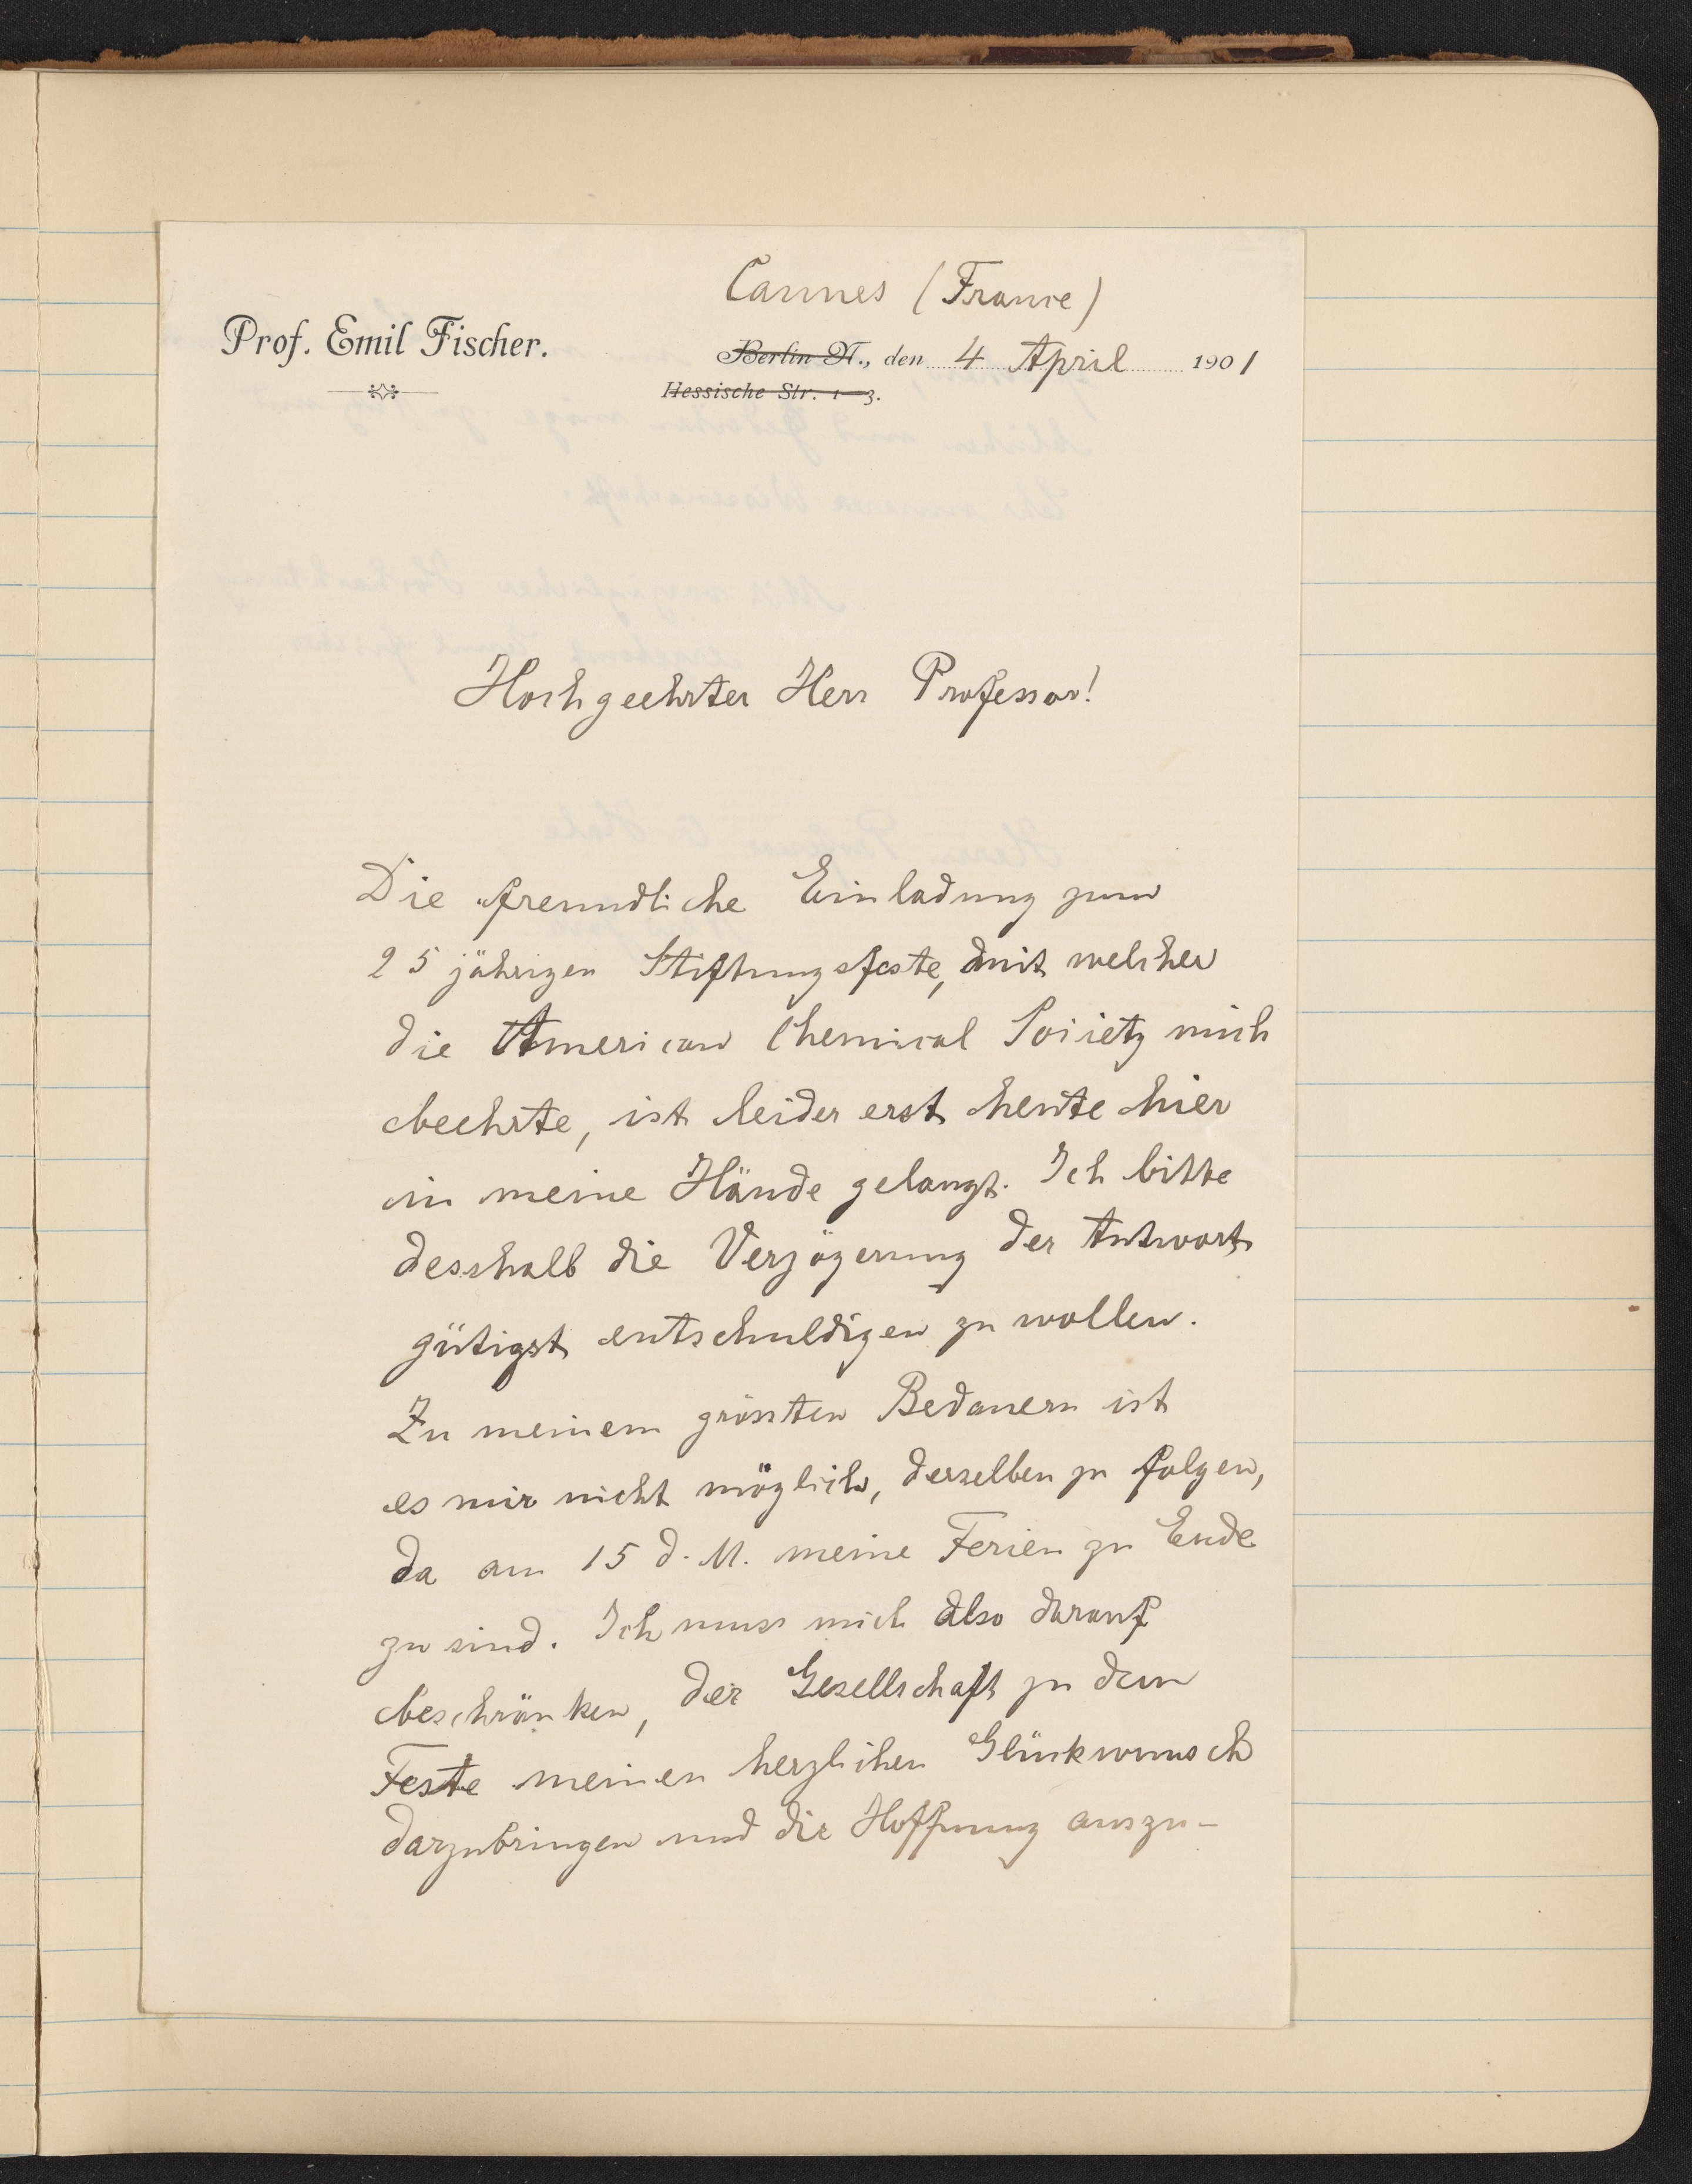 Cannes (France)
Prof. Emil Fischer.
Berlin N., den 4 April 1901
Hessische Str. 1—3.
Hochgeehrter Herr Professor!
Die freundliche Einladung zum
25 jährigen Stiftungsfeste, mit welcher
die American Chemical Society mich
beehrte, ist leider erst heute hier
in meine Hände gelangt. Ich bitte
desshalb die Verzögerung der Antwort
gütigst entschuldigen zu wollen.
Zu meinem grössten Bedauern ist
es mir nicht möglich, derselben zu folgen,
da am 15 d. M. meine Ferien zu Ende
zu sind. Ich muss mich also darauf
beschränken, der Gesellschaft zu dem
Feste meinen herzlichen Glückwunsch
darzubringen und die Hoffnung auszu-